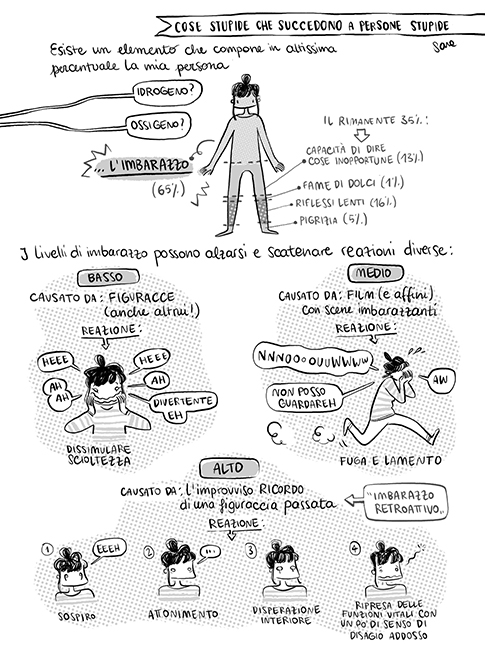 COSE STUPIDE CHE SUCCEDONO A PERSONE STUPIDE
Sare
Esiste un elemento che compone in altissima
percentuale la mia persona
IDROGENO?
OSSIGENO?
...L'IMBARAZZO
(65%)
IL RIMANENTE 35%:
CAPACITÀ DI DIRE
COSE INOPPORTUNE (13%)
FAME DI DOLCI (1%)
RIFLESSI LENTI (16%)
PIGRIZIA (5%)
I livelli di imbarazzo possono alzarsi e scatenare reazioni diverse:
BASSO
CAUSATO DA: FIGURACCE
(anche altrui!)
REAZIONE:
HEEE
HEEE
AH
AH
AH
DIVERTENTE
EH
DISSIMULARE
SCIOLTEZZA
MEDIO
CAUSATO DA: FILM (e affini)
con scene imbarazzanti
REAZIONE:
NNNOOOOUUWWWW
NON POSSO
GUARDAREH
AW
FUGA E LAMENTO
ALTO
CAUSATO DA: L'improvviso RICORDO
di una figuraccia passata
"IMBARAZZO
RETROATTIVO"
REAZIONE:
1
EEEH
SOSPIRO
2
...
ATTONIMENTO
3
DISPERAZIONE
INTERIORE
4
RIPRESA DELLE
FUNZIONI VITALI CON
UN PO' DI SENSO DI
DISAGIO ADDOSSO